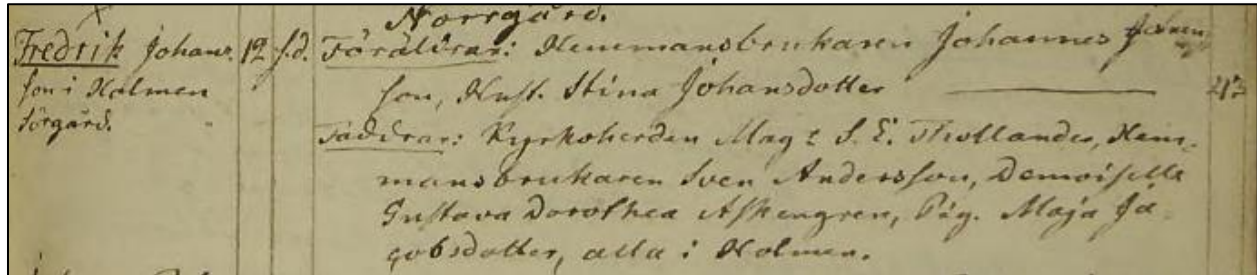 Norrgård.
Fredrik Johans- 12 s.d. Föräldrar: Hemmansbrukaren Johannes
son i Holmen son, Hust. Stina Johansdotter
Sörgård.
Faddrar: Kyrkoherden Mag: S. E. Thollander, Hem-
mansbrukaren Sven Andersson, Demoiselle
Gustava Dorothea Askengren, Pig. Maja Ja-
cobsdotter, alla i Holmen.